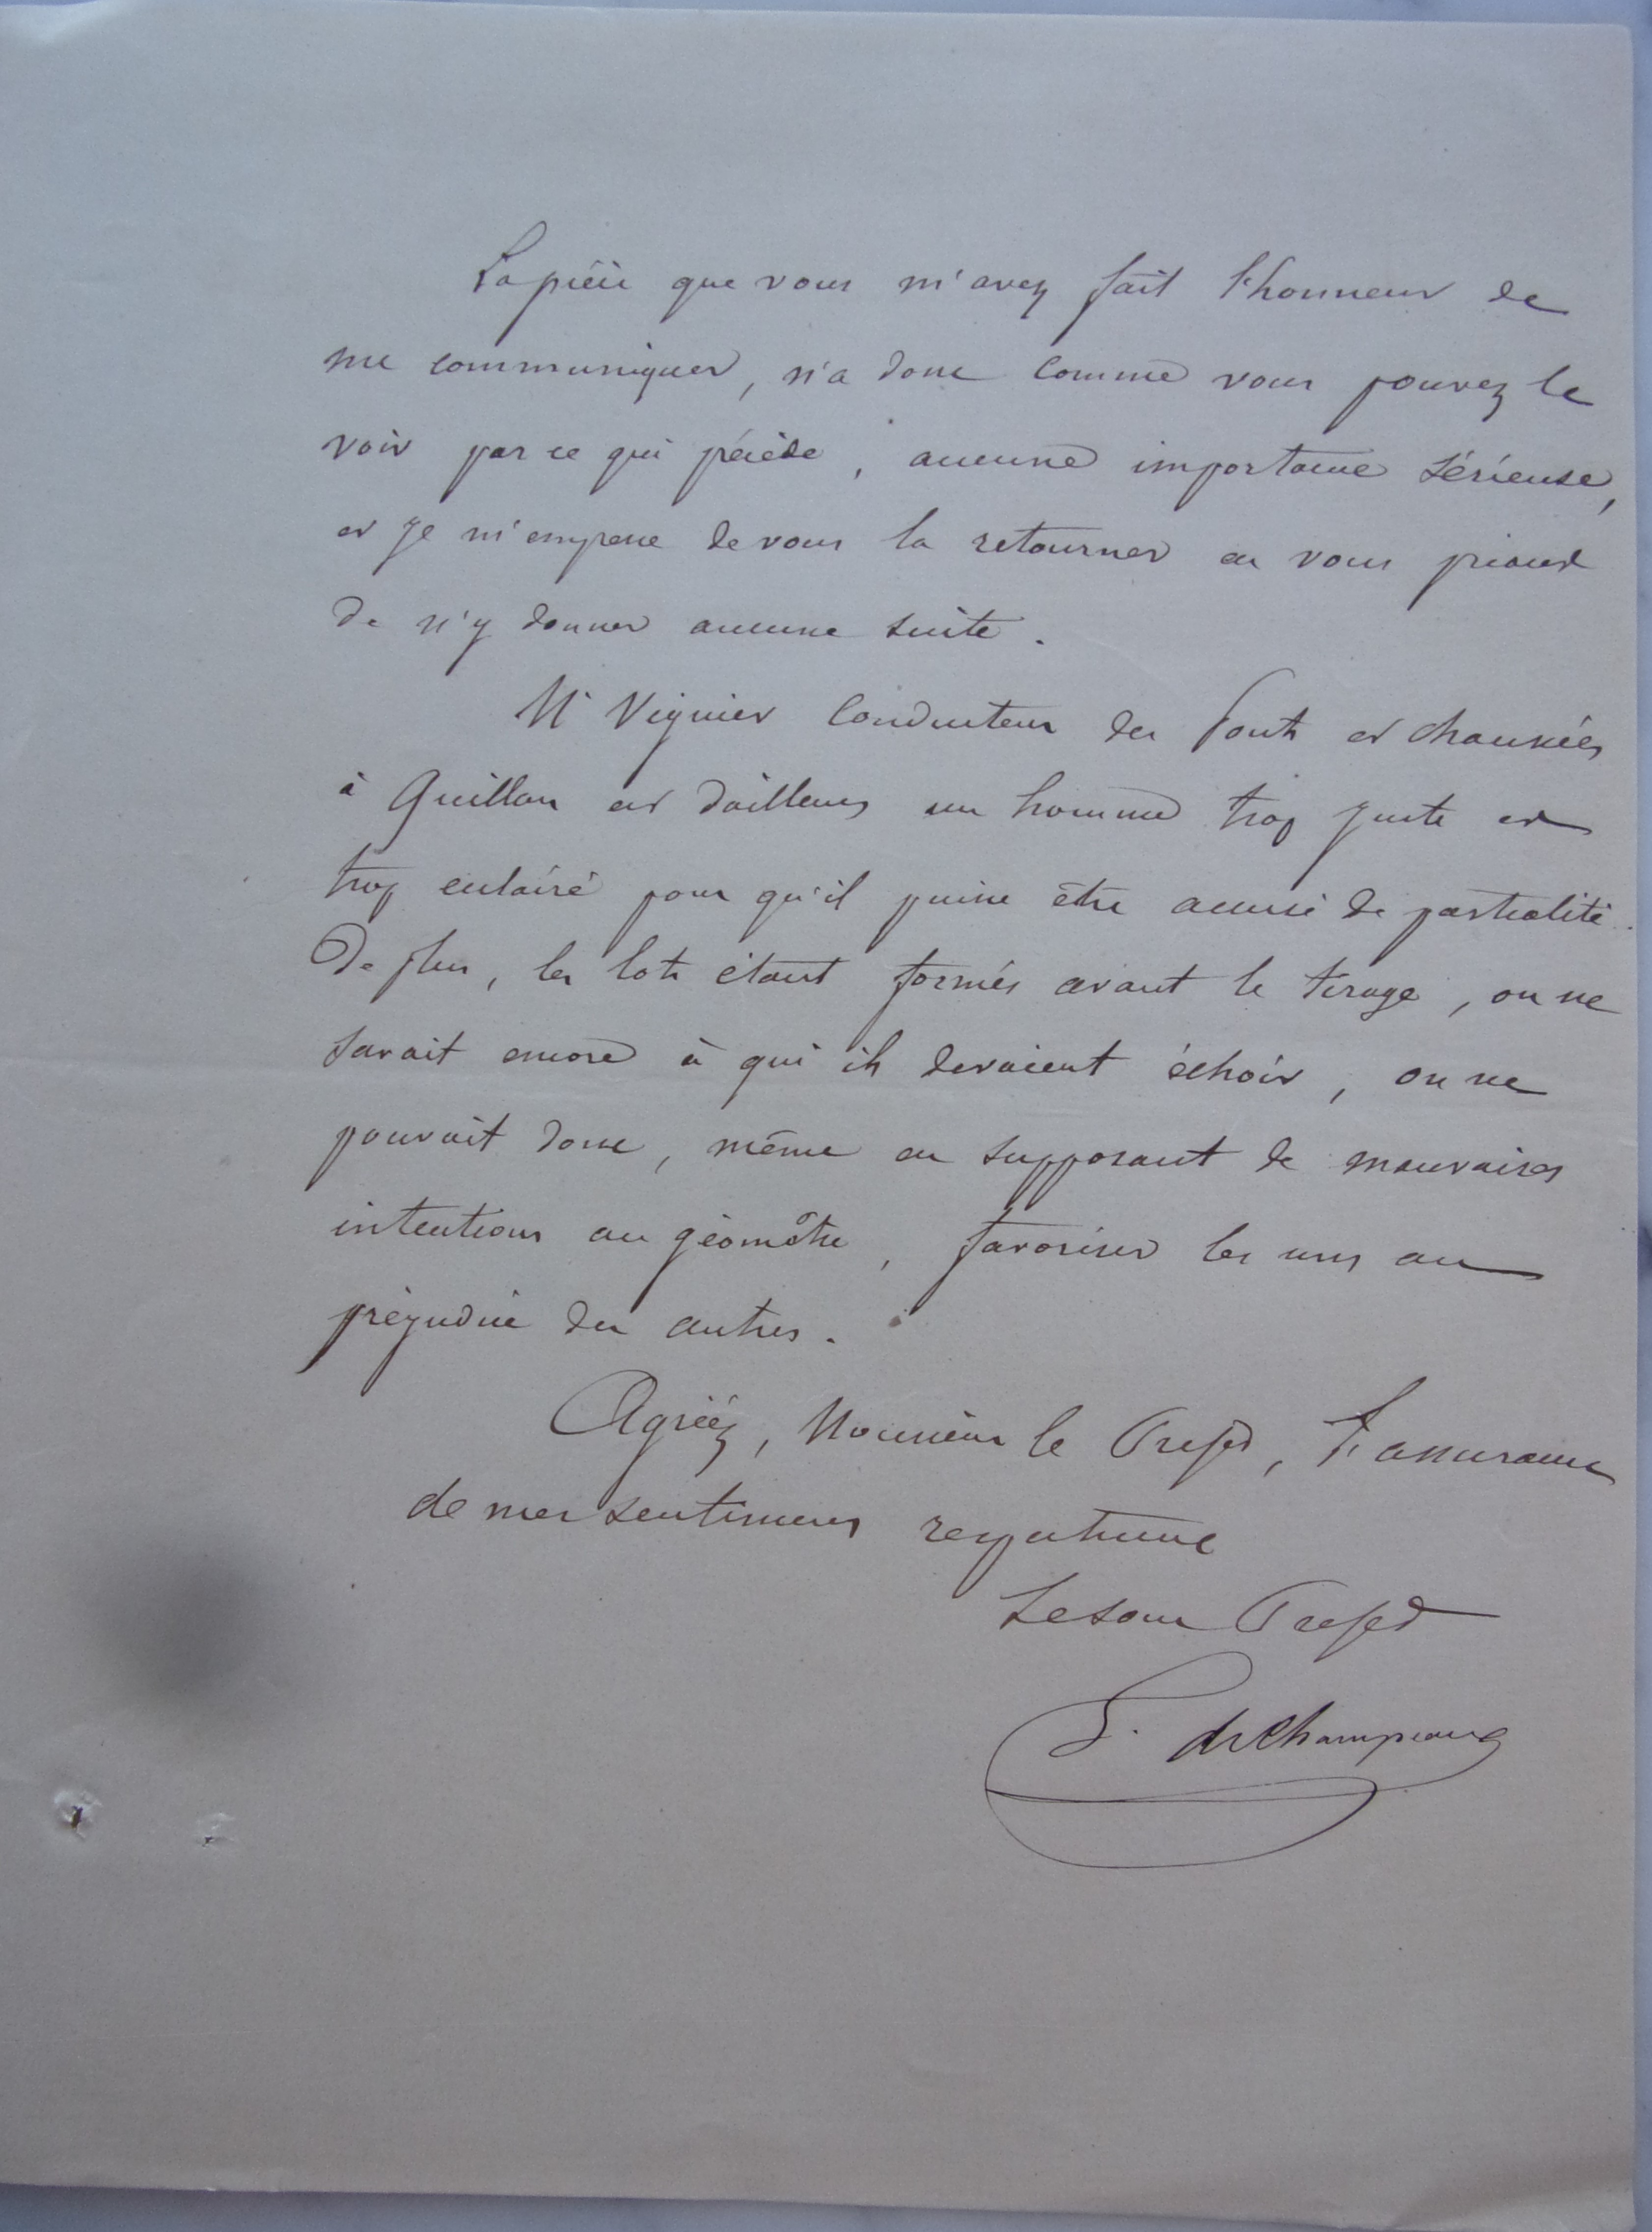 La pièce que vous m'avez fait l'honneur de
me communiquer, n'a donc comme vous pouvez le
voir par ce qui précède, aucune importance sérieuse,
et je m'empresse de vous la retourner en vous priant
de n'y donner aucune suite.
Mr Viguier Conducteur des Ponts et chaussées
à Guillon est d'ailleurs un homme trop juste et
trop éclairé pour qu'il puisse être accusé de partialité.
De plus, les lots étant formés avant le tirage, on ne
savait encore à qui ils devaient échoir, on ne
pouvait donc, même en supposant de mauvaises
intentions au géomètre, favoriser les uns au
préjudice des autres.
Agréez, Monsieur le Préfet, l'assurance
de mes sentiments respectueux
Le sous Préfet
deChampeaux